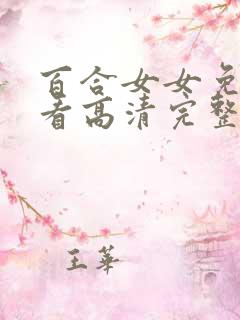 百合女女免
看高清完整
王华